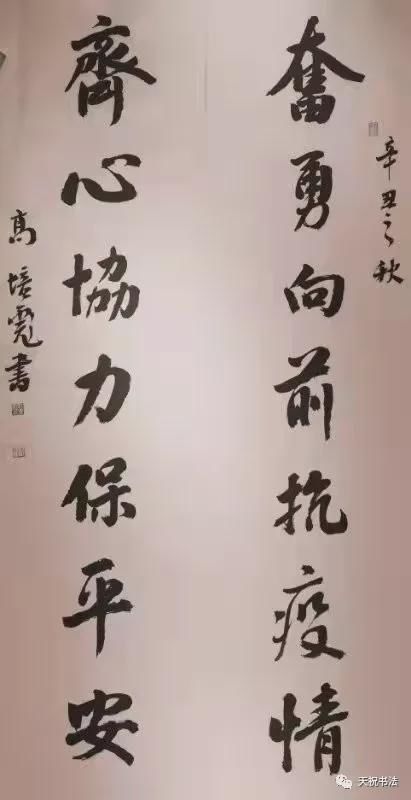 辛丑之秋
奮勇向前抗疫情
齊心協力保平安
高培霓書
天祝书法